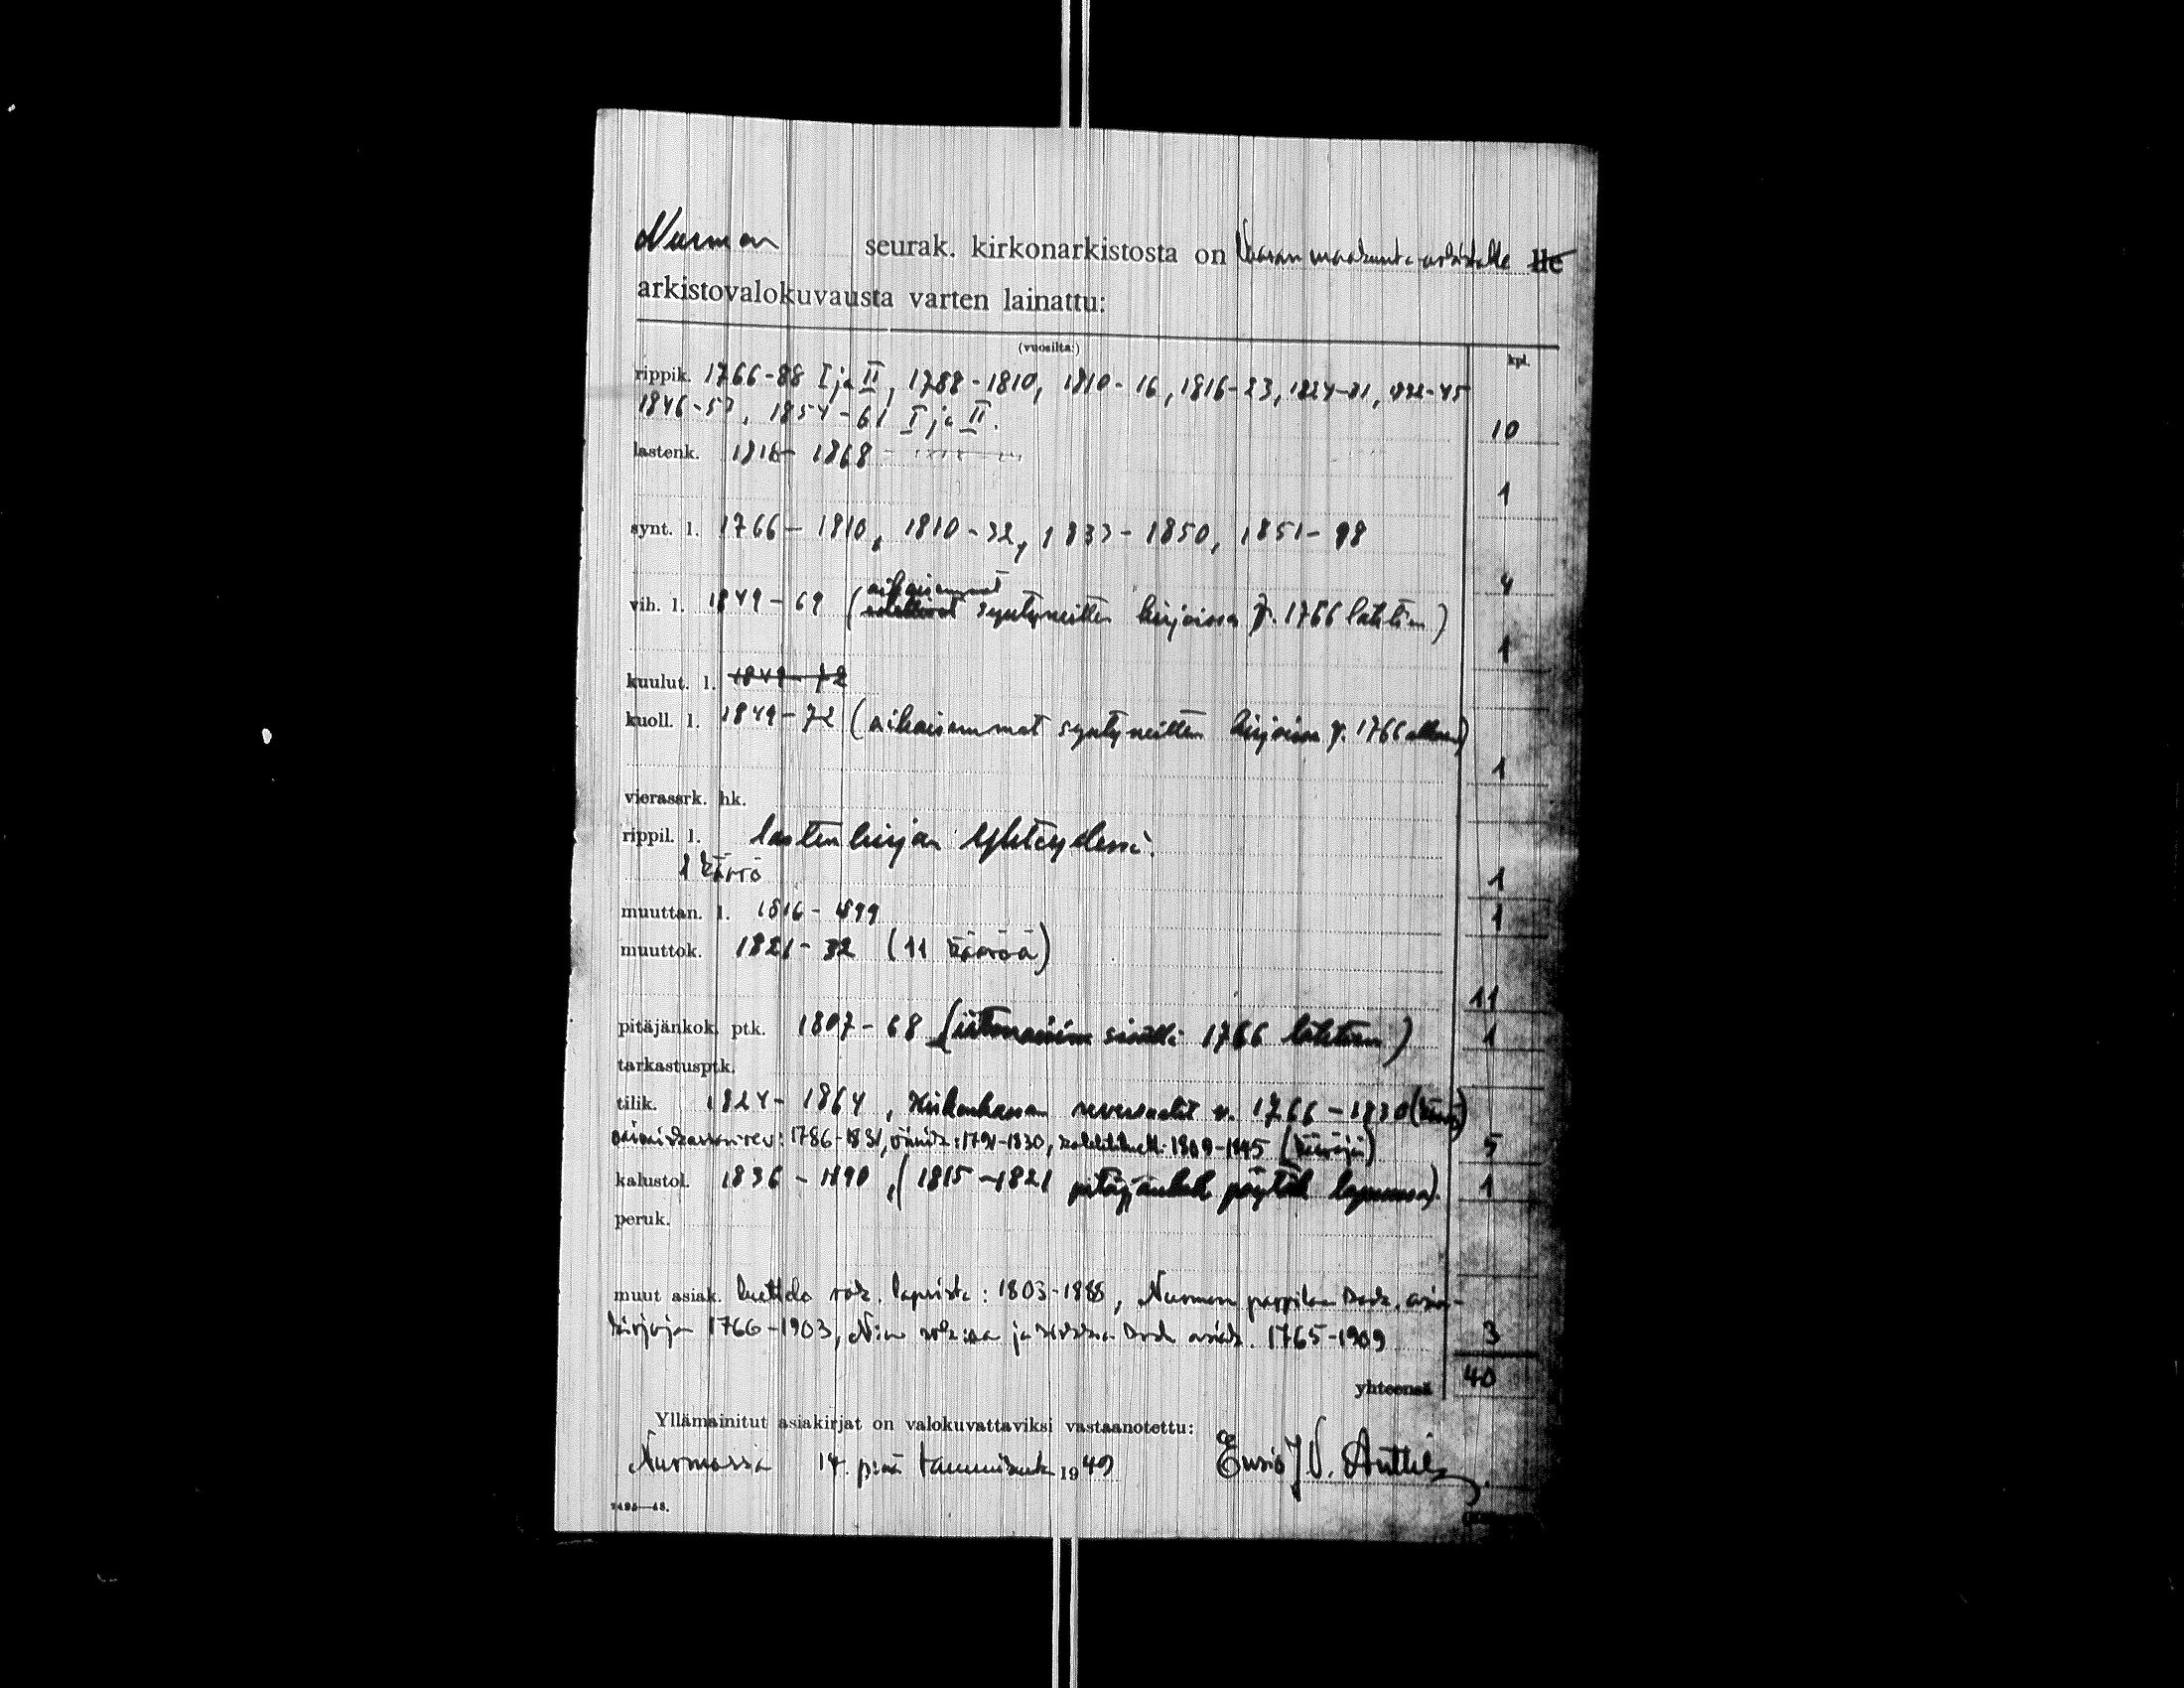 Nurmon seurak. kirkonarkistosta on Vaasan maakunta-arkistolle He
arkistovalokuvausta varten lainattu:
(vuosilta:) kpl.
rippik. 1766-88 I ja II, 1788-1810, 1810-16, 1816-23, 1824-31, 1832-45
1846-53, 1854-61 I ja II. 10
lastenk. 1816- 1868
1
synt. l. 1766- 1810, 1810-32, 1833-1850, 1851-98
4
aikaisemmat
vih. l. 1849-69 ( syntyneitten kirjoissa v. 1766 lähtien)
1
kuulut. l. 1849-72
kuoll. l. 1849-72 (aikaisemmat syntyneitten kirjoissa v. 1766 alkaen)
1
vierassrk. hk.
rippil. l. lastenkirjan yhteydessä.
1 käärö 1
muuttan. l. 1816- 1899 1
muuttok. 1821-32 (11 kääröä)
11
pitäjänkok. ptk. 1807-68 ( 1766 lähtien) 1
tarkastusptk.
tilik. 1824- 1864, Kirkonkassan reversaalit v. 1766-1830
1786-1831, 1791-1830, 1809-1845 5
kalustol. 1836-1890, (1815-1821 pitäjänkok. pöytäk. lopussa). 1
peruk.
muut asiak. luettelo rok. lapsista: 1803-1888, Nurmon pappilan kosk. asia-
kirjoja 1766-1903, N:n ja kosk. asiak. 1765-1909 3
yhteensä 40
Yllämainitut asiakirjat on valokuvattaviksi vastaanotettu:
Nurmossa 14. p:nä tammikuuta 1949 Ensio J. V. Anttila